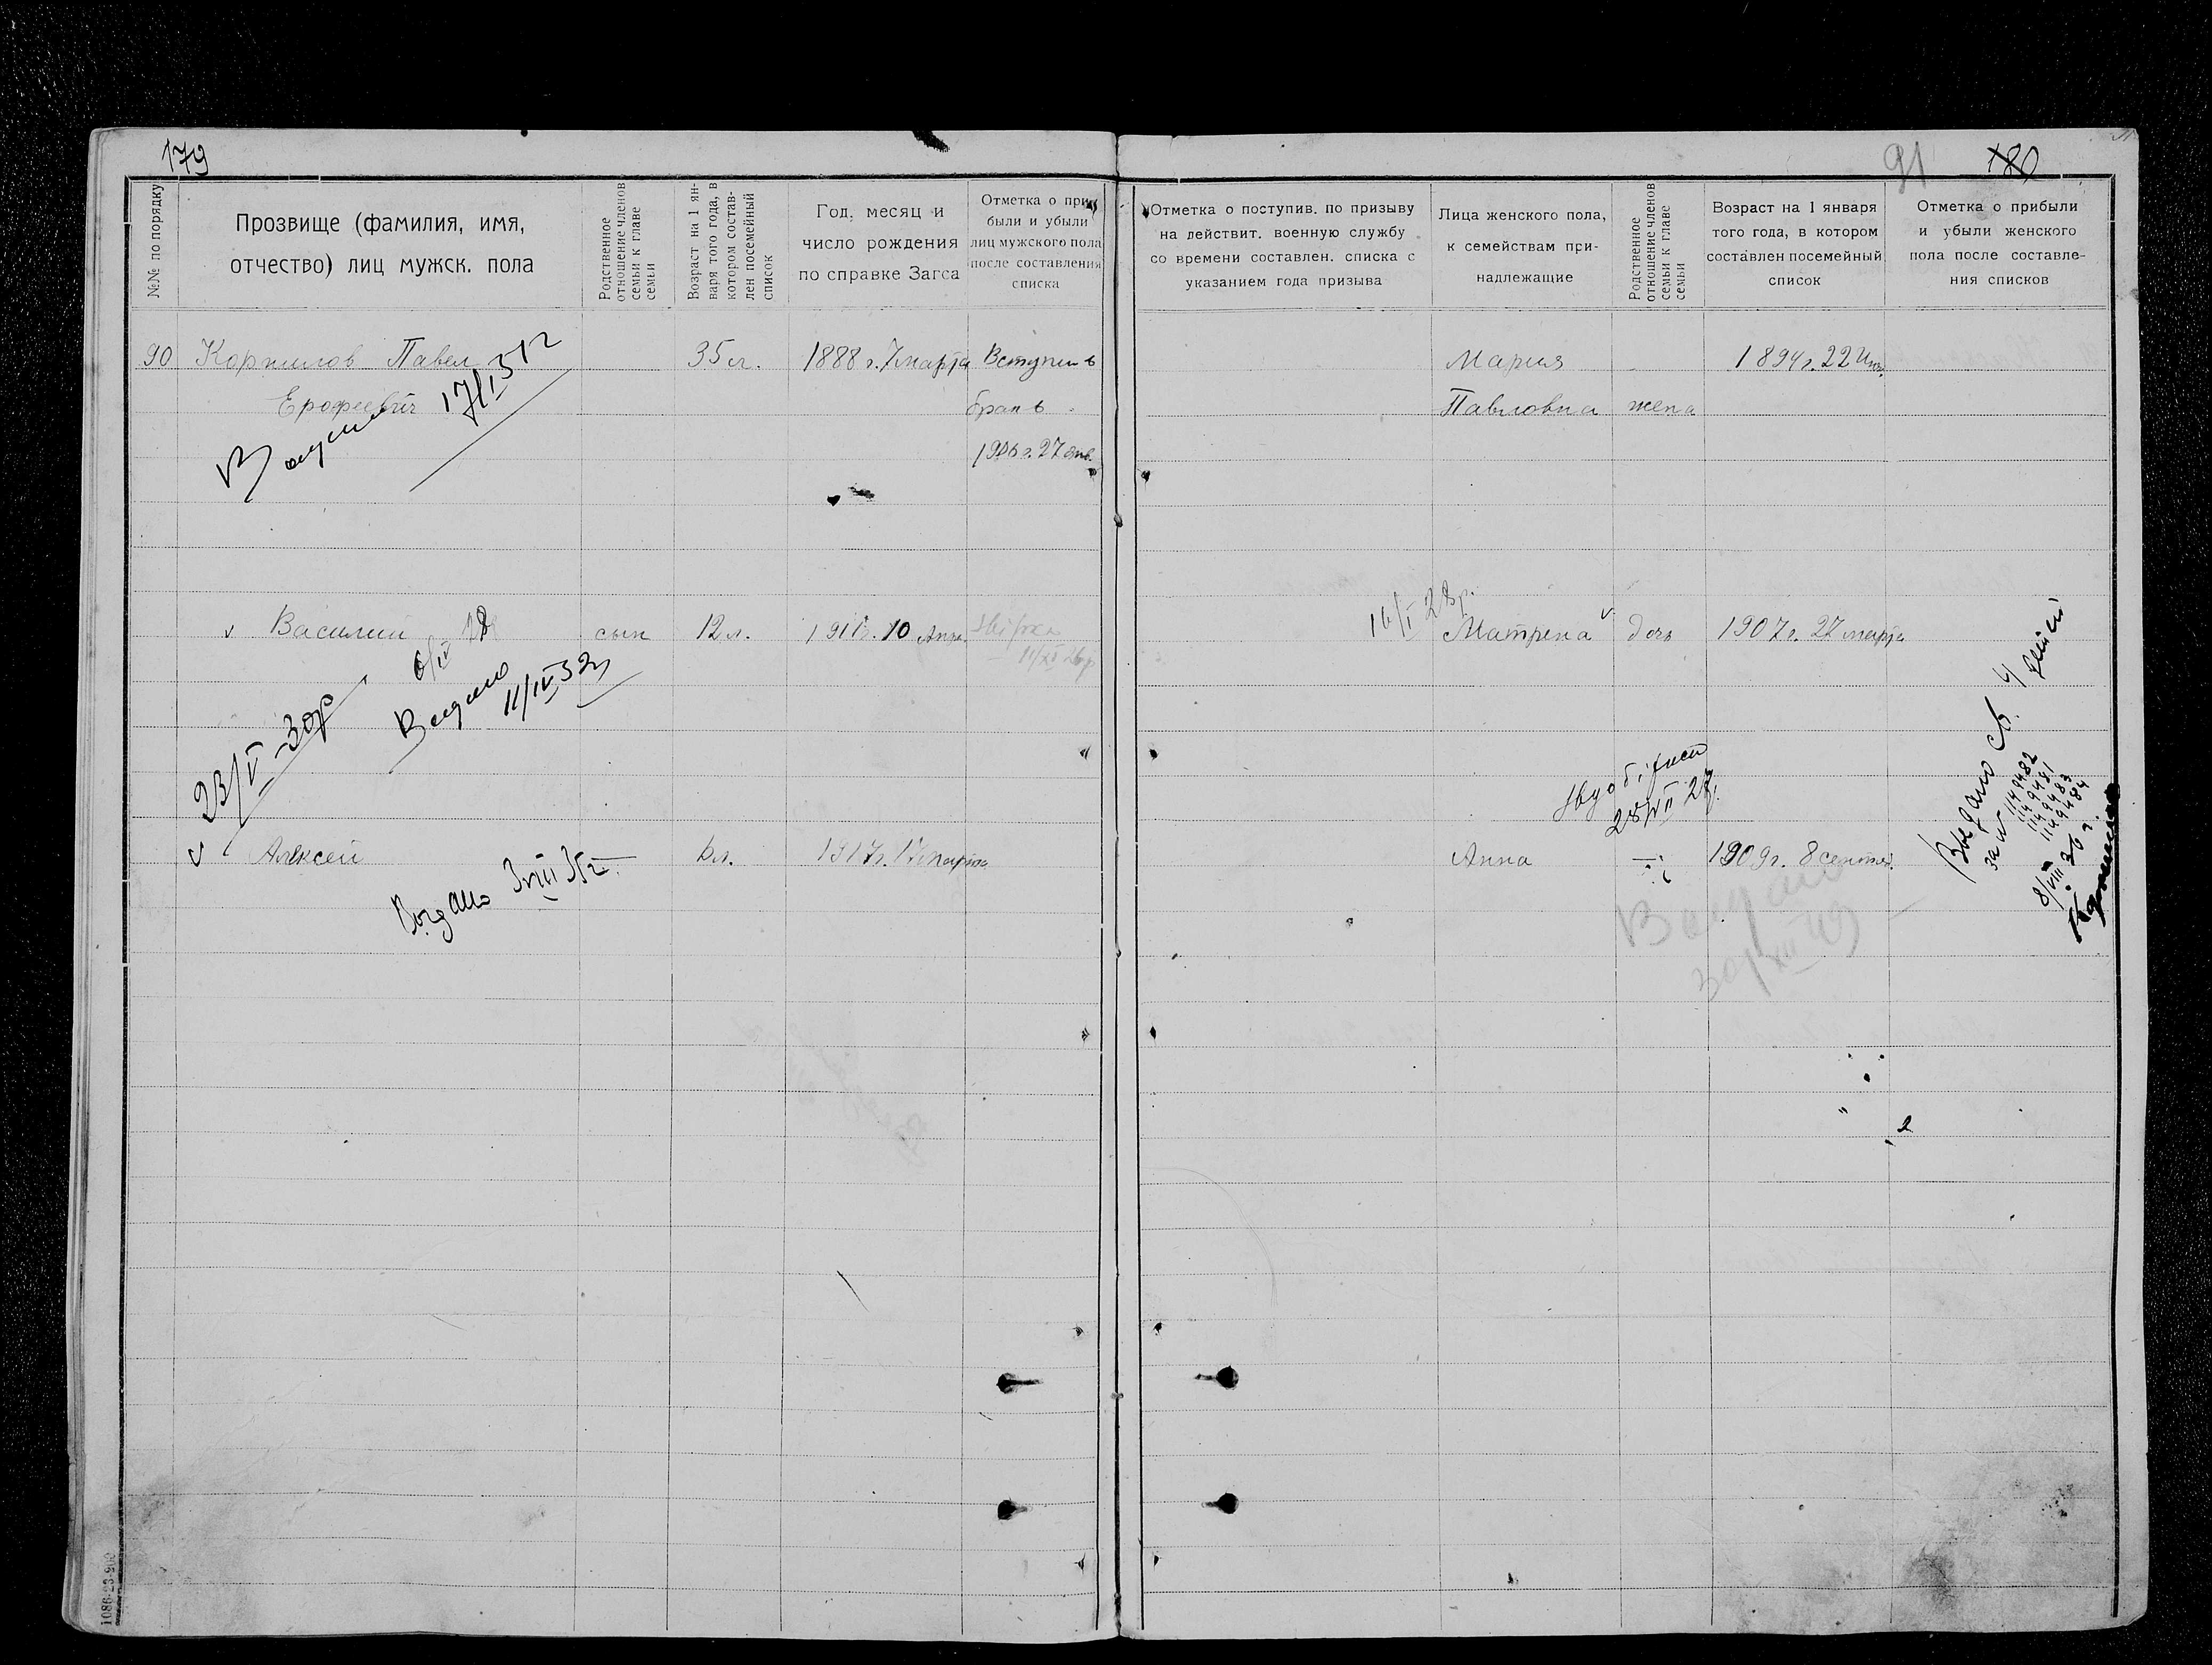 179
№№ по порядку
Прозвище (фамилия, имя,
отчество) лиц мужск. пола
Родственное
отношение членов
семьи к главе
семьи
Возраст на 1 ян-
варя того года, в
котором состав-
лен посемейный
список
Год, месяц и
число рождения
по справке Загса
Отметка о при-
были и убыли
лиц мужского пола
после составления
списка
90 Корнилов Павел 35 л. 1888 г. 7 марта Вступил в
Ерофеевич брак в
1906 г. 27 янв.
17/I 51 г
Василий сын 12 л. 1911 г. 10 Апр.
6/IV 28
Видано
11/IV 32
23/V-30р
Алексей 6 л. 1917 г. 17 марта
Видано 3/VIII 35 г.
1086-23-900
91 180
Отметка о поступив. по призыву
на действит. военную службу
со времени составлен. списка с
указанием года призыва
Лица женского пола,
к семействам при-
надлежащие
Родственное
отношение членов
семьи к главе
семьи
Возраст на 1 января
того года, в котором
составлен посемейный
список
Отметка о прибыли
и убыли женского
пола после составле-
ния списков
Мария 1894 г. 22
Павловна жена
16/I 28р.
Матрена дочь 1907 г. 27 марта
28/VII 27р.
Анна 1909 г. 8 сентяб.
Видано
30/XII 49
Видано св. 4 детей
за №
114482
8/VIII 36 г.